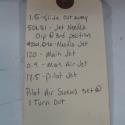 1.5 - Slide cut away
- Jet Needle
Clip @ 3rd position
- Needle Jet
120 - Main Jet
0.9 - Main Air Jet
17.5 - Pilot Jet
Pilot Air Screws set @
1 Turn Out